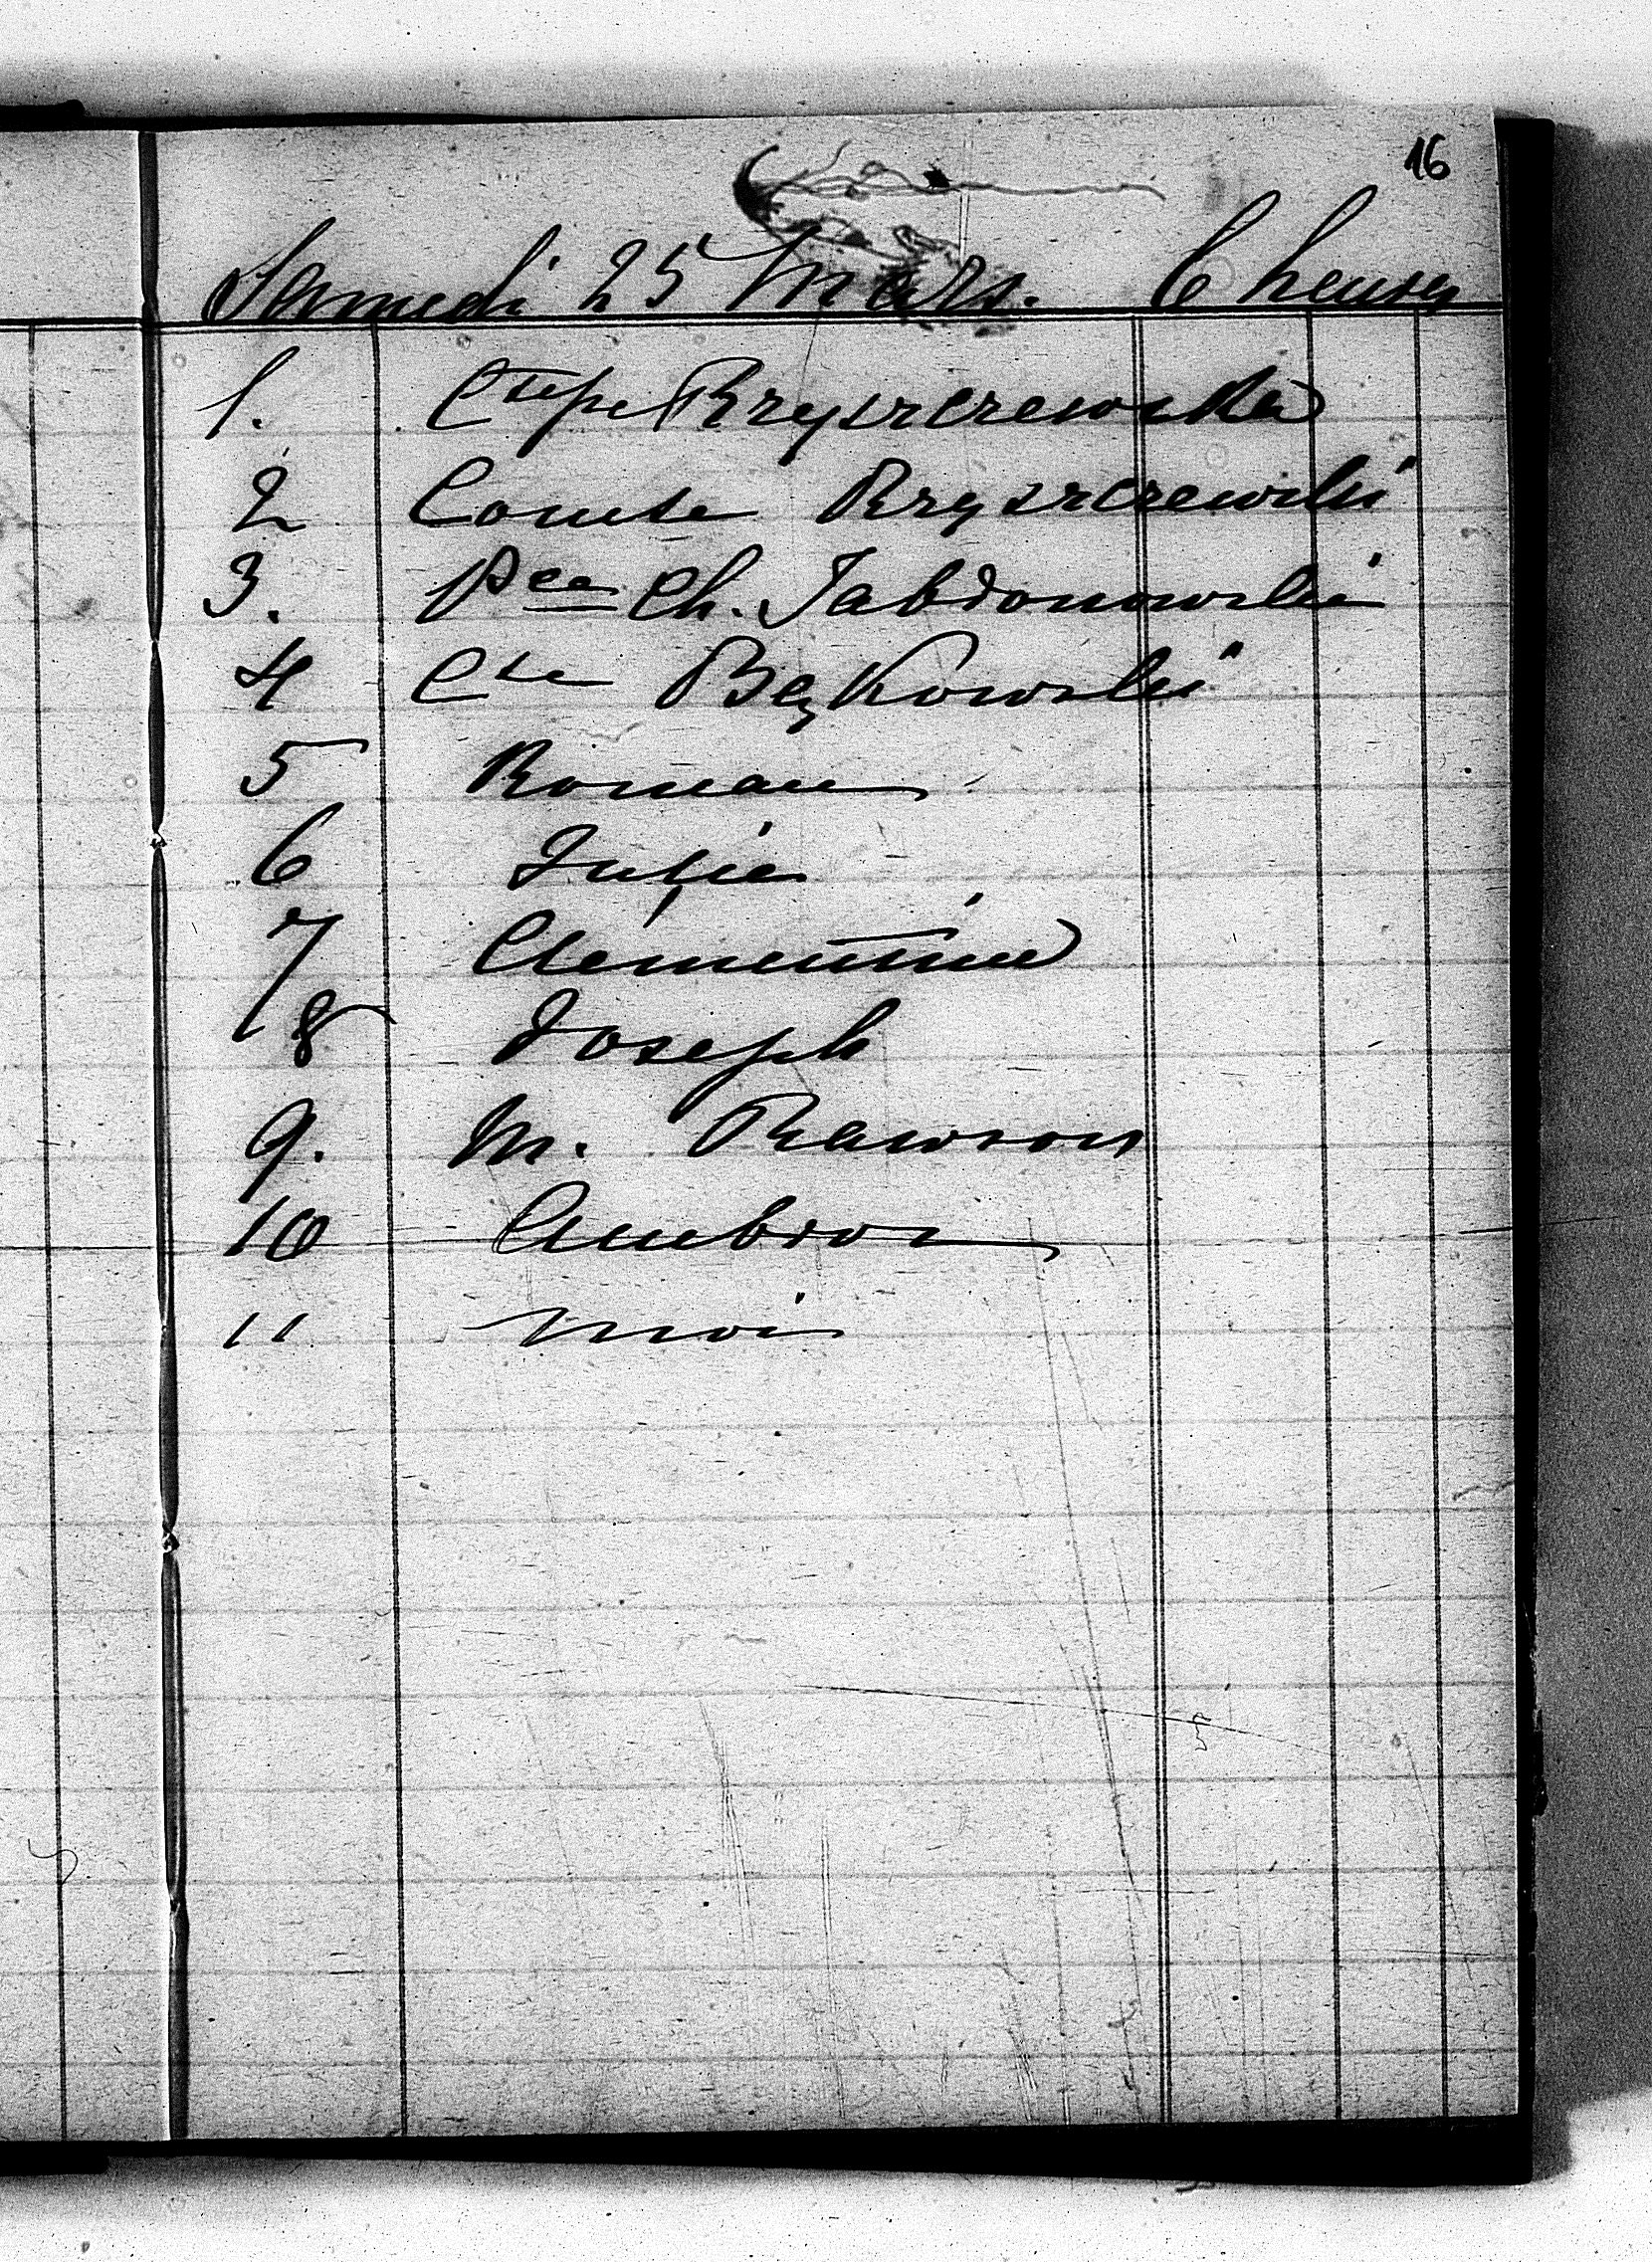 16
Samedi 25 Mars. 6 heures
1. Ctesse Ryszczewska
2 Comte Ryszczewski
3. Pce Ch. Jabłonowski
4 Cte Bąkowski
5 Roman
6 Julie
7 Clementine
8 Joseph
9. M. Rawson
10 Ambros
11 moi